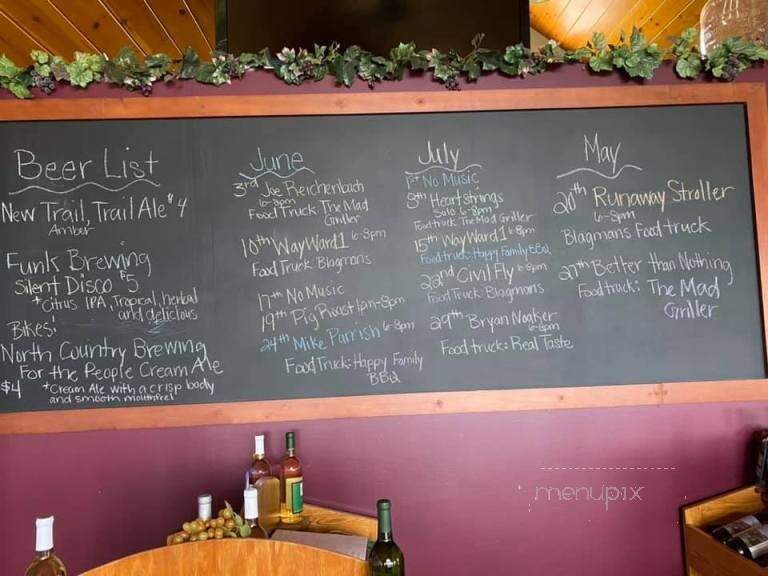 Beer List
New Trail, Trail Ale $4
Amber
Funk Brewing
Silent Disco $5
+Citrus IPA, Tropical, herbal
and delicious
Bikes:
North Country Brewing
For the People Cream Ale
$4 +Cream Ale with a crisp body
and smooth mouthfeel
June
3rd Joe Reichenbach
6-8pm
Food Truck: The Mad
Griller
10th WayWard1 6-8pm
Food Truck: Blagmans
17th No Music
19th Pig Roast 1pm-8pm
24th Mike Parrish 6-8pm
Food Truck: Happy Family
BBQ
July
1st No Music
8th Heartstrings
Solo 6-8pm
Food truck: The Mad Griller
15th WayWard1 6-8pm
Food truck: Happy Family BBQ
22nd Civil Fly 6-8pm
Food Truck: Blagmans
29th Bryan Noaker
6-8pm
Food truck: Real Taste
May
20th Runaway Stroller
6-8pm
Blagmans Food truck
27th Better than Nothing
Food truck: The Mad
Griller
menupix